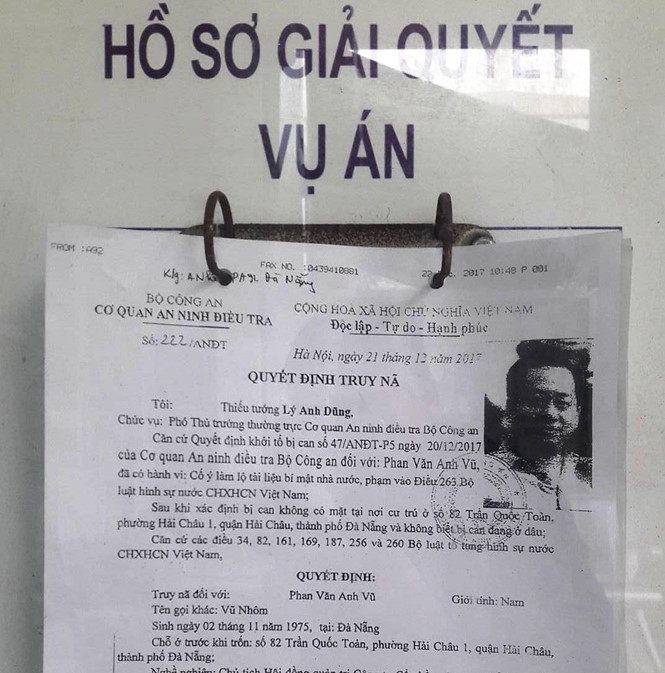 HỒ SƠ GIẢI QUYẾT
VỤ ÁN
FROM :A92
FAX NO. :0439410881
2017 10:48 P 001
BỘ CÔNG AN
CƠ QUAN AN NINH ĐIỀU TRA
Số: 222/ANĐT
CỘNG HOÀ XÃ HỘI CHỦ NGHĨA VIỆT NAM
Độc lập - Tự do - Hạnh phúc
Hà Nội, ngày 21 tháng 12 năm 2017
QUYẾT ĐỊNH TRUY NÃ
Tôi: Thiếu tướng Lý Anh Dũng,
Chức vụ: Phó Thủ trưởng thường trực Cơ quan An ninh điều tra Bộ Công an
Căn cứ Quyết định khởi tố bị can số 47/ANĐT-P5 ngày 20/12/2017
của Cơ quan An ninh điều tra Bộ Công an đối với: Phan Văn Anh Vũ,
đã có hành vi: Cố ý làm lộ tài liệu bí mật nhà nước, phạm vào Điều 263 Bộ
luật hình sự nước CHXHCN Việt Nam;
Sau khi xác định bị can không có mặt tại nơi cư trú ở số 82 Trần Quốc Toản,
phường Hải Châu 1, quận Hải Châu, thành phố Đà Nẵng và không biết bị can đang ở đâu;
Căn cứ các điều 34, 82, 161, 169, 187, 256 và 260 Bộ luật tố tụng hình sự nước
CHXHCN Việt Nam,
QUYẾT ĐỊNH:
Truy nã đối với: Phan Văn Anh Vũ Giới tính: Nam
Tên gọi khác: Vũ Nhôm
Sinh ngày 02 tháng 11 năm 1975, tại: Đà Nẵng
Chỗ ở trước khi trốn: số 82 Trần Quốc Toản, phường Hải Châu 1, quận Hải Châu,
thành phố Đà Nẵng;
Nghề nghiệp: Chủ tịch Hội đồng quản trị